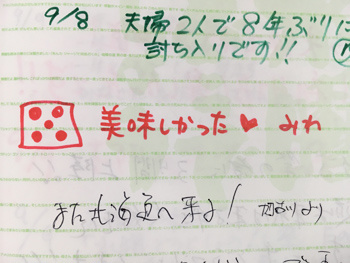 9/8 夫婦2人で8年ぶりに
討ち入りです!!
美味しかった♥ みわ
また北海道へ来よ!
より